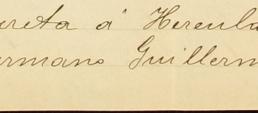 creta á Hercula
ermano Guillerm